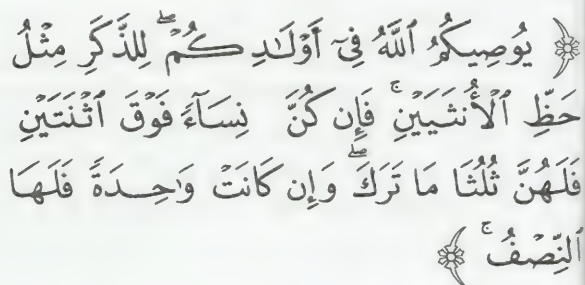 ﴿ يُوصِيكُمُ ٱللَّهُ فِىٓ أَوْلَـٰدِكُمْ ۖ لِلذَّكَرِ مِثْلُ
حَظِّ ٱلْأُنثَيَيْنِ ۚ فَإِن كُنَّ نِسَآءً فَوْقَ ٱثْنَتَيْنِ
فَلَهُنَّ ثُلُثَا مَا تَرَكَ ۖ وَإِن كَانَتْ وَٰحِدَةً فَلَهَا
ٱلنِّصْفُ ۚ ﴾